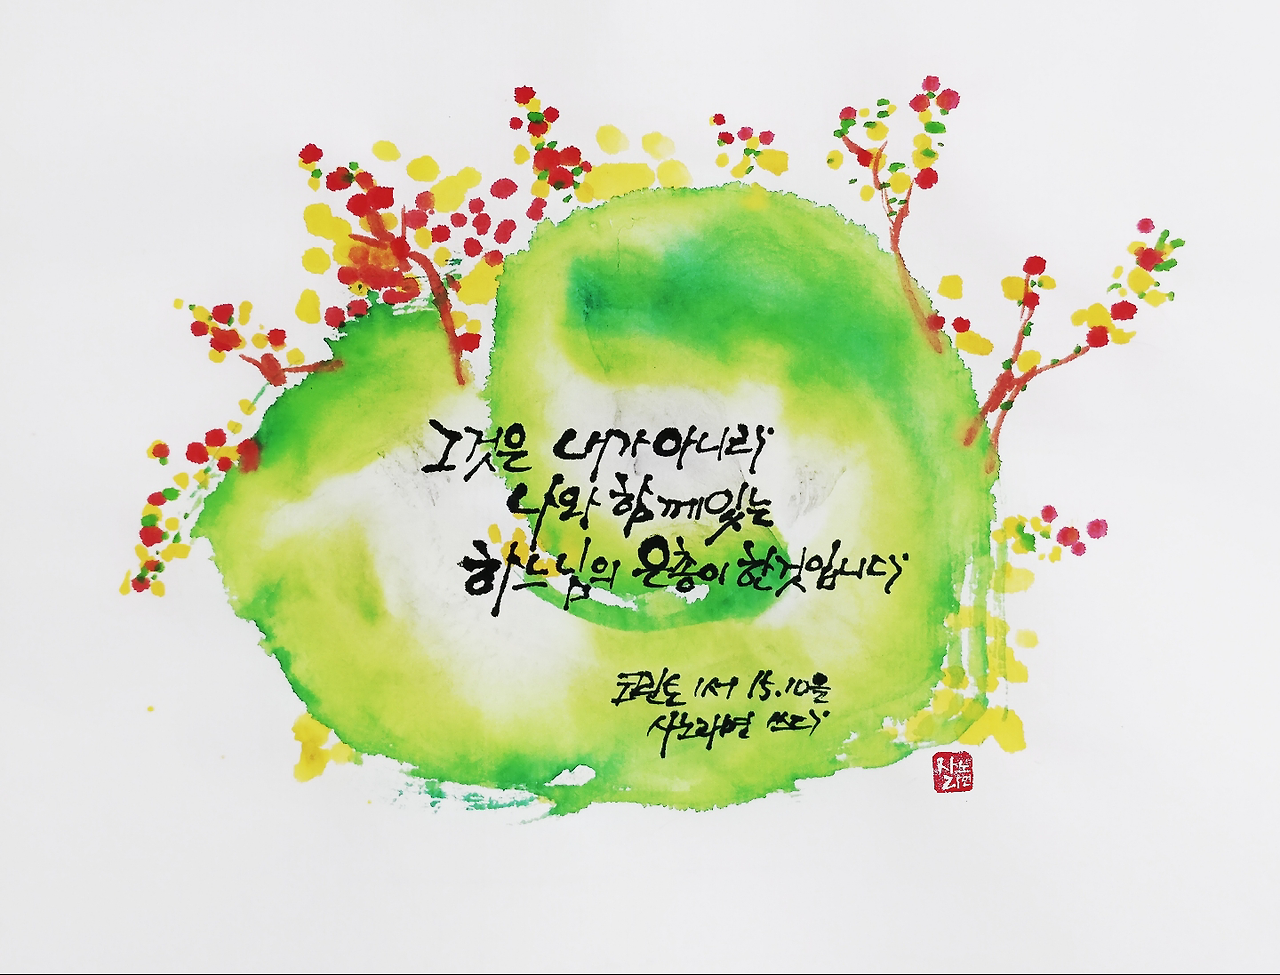 그것은 내가 아니라
나와 함께 있는
하느님의 은총이 한 것입니다
코린토 1서 15.10을
사노라면 쓰다
사노라면